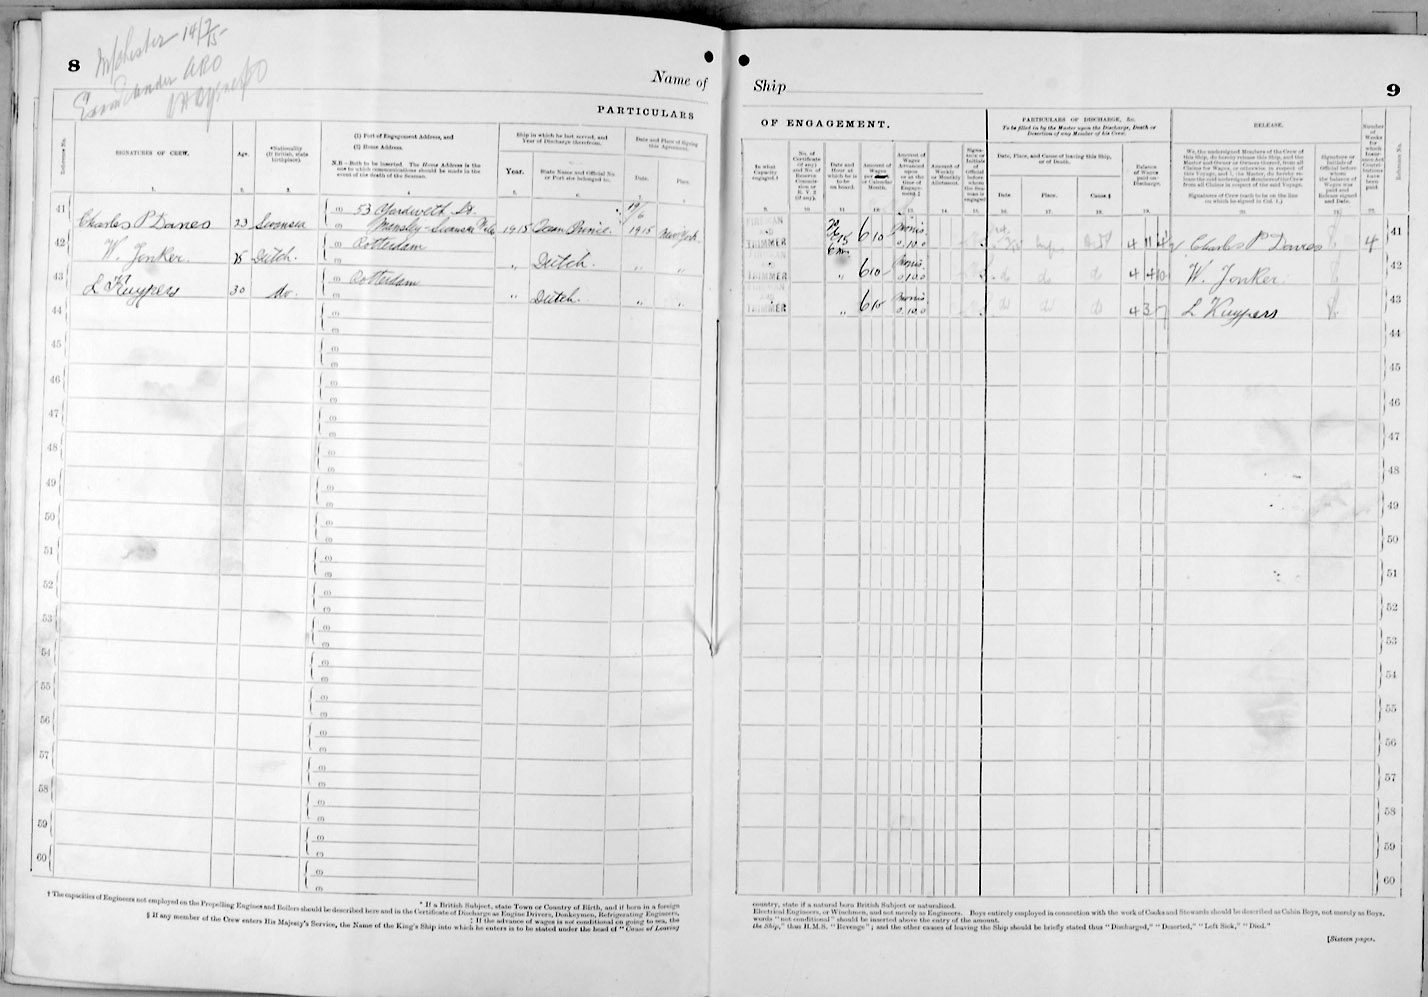 8
M/chester 14/7/15
Name of
PARTICULARS
Reference No.
SIGNATURES OF CREW.
Age.
*Nationality
(If British, state
birthplace).
(1) Port of Engagement Address, and
(2) Home Address.
N.B.—Both to be inserted. The Home Address is the
one to which communications should be made in the
event of the death of the Seaman.
Ship in which he last served, and
Year of Discharge therefrom.
Year.
State Name and Official No.
or Port she belonged to.
Date and Place of Signing
this Agreement.
Date.
Place.
1.
2.
3.
4.
5.
6.
41
Charles P Davies
23
Swansea
(1) 53
St.
(2)
Swansea
1915
Prince
19/6
1915
New York
42
W. Jonker
Dutch.
(1) Rotterdam
"
Dutch.
"
"
43
L Kuypers
30
do.
(1) Rotterdam
"
Dutch.
"
"
44
45
46
47
48
49
50
51
52
53
54
55
56
57
58
59
60
† The capacities of Engineers not employed on the Propelling Engines and Boilers should be described here and in the Certificate of Discharge as Engine Drivers, Donkeymen, Refrigerating Engineers,
* If a British Subject, state Town or Country of Birth, and if born in a foreign
‡ If the advance of wages is not conditional on going to sea, the
§ If any member of the Crew enters His Majesty's Service, the Name of the King's Ship into which he enters is to be stated under the head of "Cause of Leaving
Ship
9
OF ENGAGEMENT.
PARTICULARS OF DISCHARGE, &c.
To be filled in by the Master upon the Discharge, Death or
Desertion of any Member of his Crew.
RELEASE.
In what
Capacity
engaged.†
No. of
Certificate
(if any)
and No. of
Reserve
Commis-
sion or
R. V. 2
(if any).
Date and
Hour at
which he is
to be
on board.
Amount of
Wages
per
or Calendar
Month.
Amount of
Wages
Advanced
upon
or at the
time of
Engage-
ment.‡
Amount of
Weekly
or
Monthly
Allotment.
Date, Place, and Cause of leaving this Ship,
or of Death.
Date
Place.
Cause.§
Balance
of Wages
paid on
Discharge.
We, the undersigned Members of the Crew of
this Ship, do hereby release this Ship, and the
Master and Owner or Owners thereof, from all
Claims for Wages, or otherwise in respect of
this Voyage, and I, the Master, do hereby re-
lease the undersigned Members of the Crew
from all Claims in respect of the said Voyage.
Signatures of Crew (each to be on the line
on which he signed in Col. 1.)
Signature or
Initials of
Official before
whom
the balance of
Wages was
paid and
Release signed
and Date.
Reference No.
9.
10.
11.
12.
13.
14.
15.
16.
17.
18.
19.
20.
21.
22.
FIREMAN
AND
TRIMMER
6 10
0.10.0
Charles P Davies
4
41
TRIMMER
"
6 10
0.10.0
do
do
do
4 4 10
W. Jonker
42
TRIMMER
"
6 10
0.10.0
do
do
do
4 3 7
L Kuypers
43
44
45
46
47
48
49
50
51
52
53
54
55
56
57
58
59
60
country, state if a natural born British Subject or naturalized.
Electrical Engineers, or Winchmen, and not merely as Engineers. Boys entirely employed in connection with the work of Cooks and Stewards should be described as Cabin Boys, not merely as Boys.
words "not conditional" should be inserted above the entry of the amount.
the Ship," thus H.M.S. "Revenge"; and the other causes of leaving the Ship should be briefly stated thus "Discharged," "Deserted," "Left Sick," "Died."
[Sixteen pages.